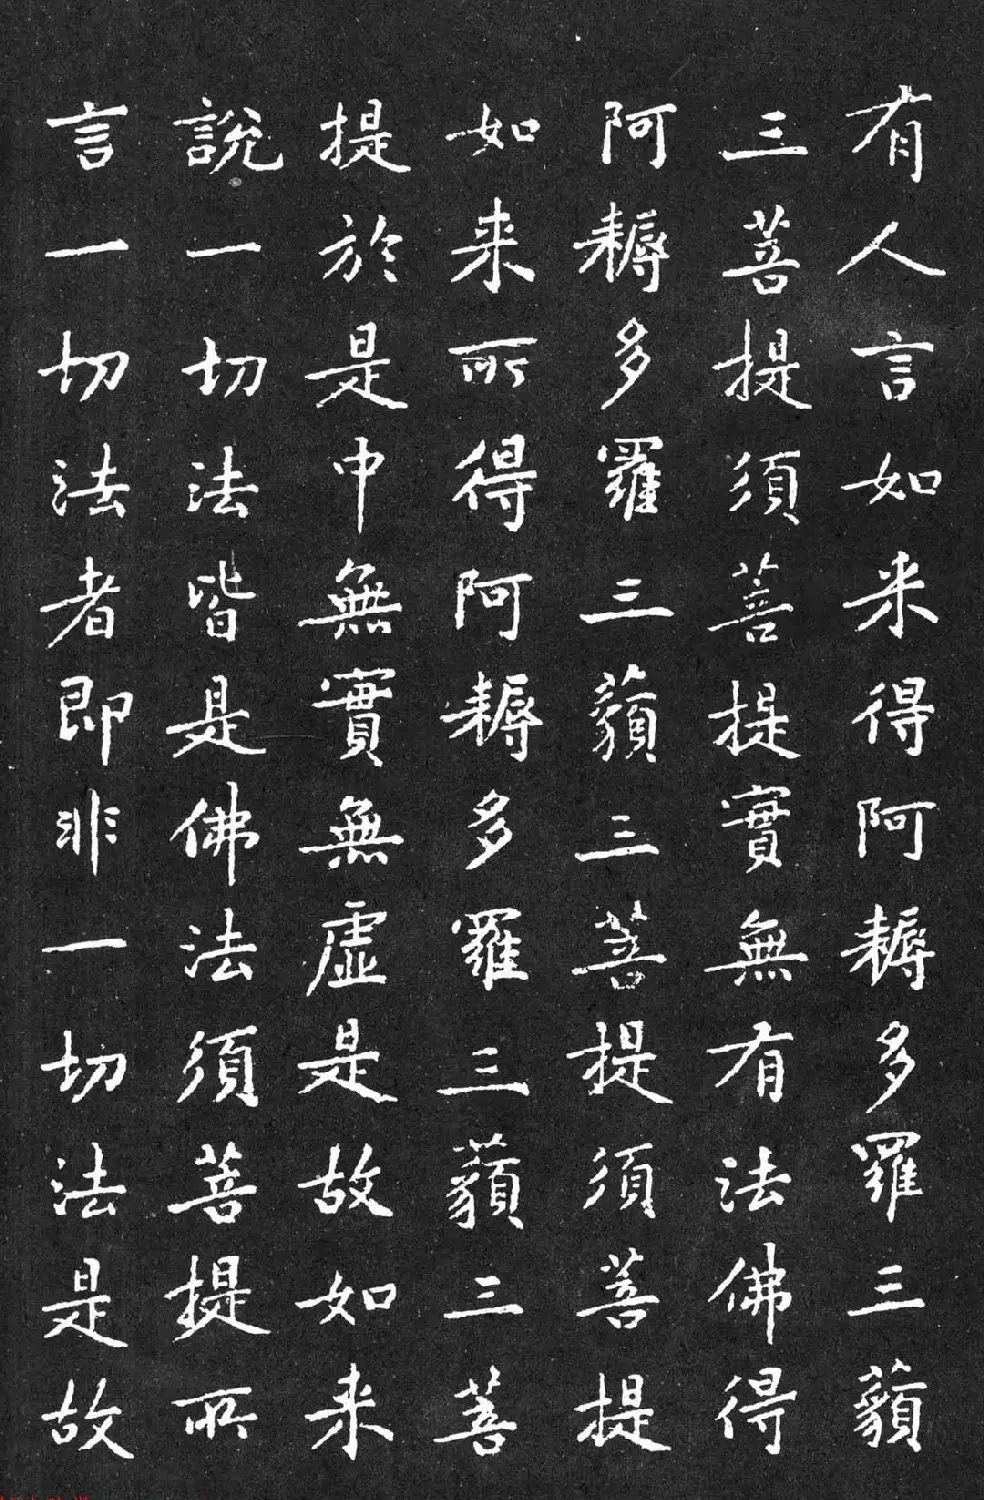 有人言如来得阿耨多羅三藐
三菩提須菩提實無有法佛得
阿耨多羅三藐三菩提須菩提
如来所得阿耨多羅三藐三菩
提於是中無實無虛是故如来
說一切法皆是佛法須菩提所
言一切法者即非一切法是故